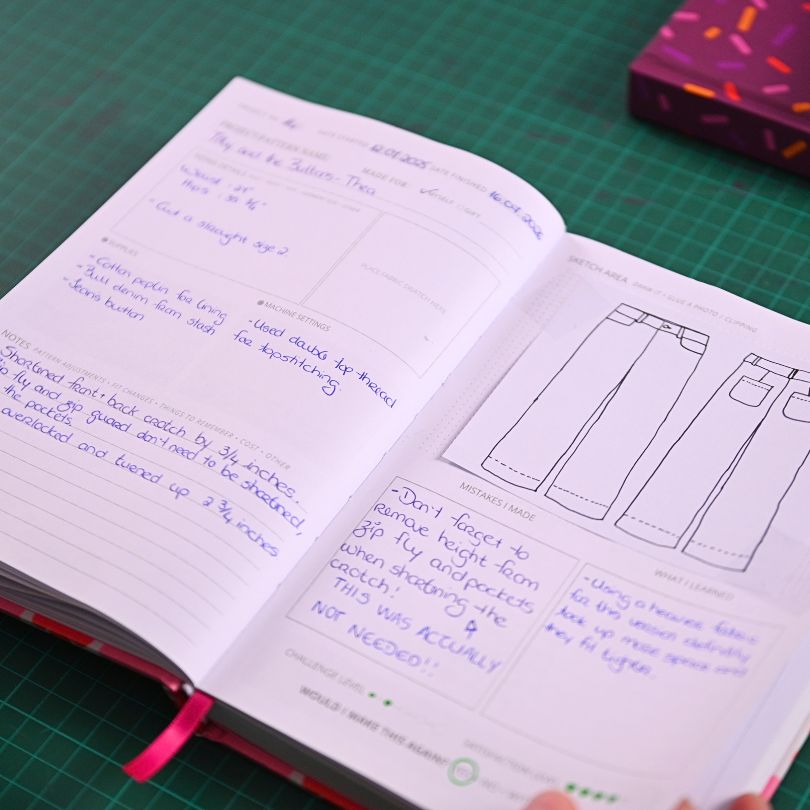 DATE STARTED 12.01.2025 DATE FINISHED
PROJECT/PATTERN NAME
Tilly and the Buttons - Thea
MADE FOR: ✓MYSELF
Waist
Hips
- Cut a straight size 2
PLACE FABRIC SWATCH HERE
SUPPLIES
- Cotton poplin for lining
- Bull denim from stash
- Jeans button
MACHINE SETTINGS
- Used double top-thread
for topstitching.
NOTES PATTERN ADJUSTMENTS • FIT CHANGES • THINGS TO REMEMBER • COST • OTHER
Shortened front + back crotch by 3/4 inches.
fly and zip guard don't need to be shortened,
the pockets.
overlocked and turned up 2 3/4 inches
SKETCH AREA DRAW IT • GLUE A PHOTO / CLIPPING
MISTAKES I MADE
- Don't forget to
remove height from
zip fly and pockets
when shortening the
crotch!
THIS WAS ACTUALLY
NOT NEEDED!!
WHAT I LEARNED
- Using a heavier fabric
for this version definitely
took up more space and
they fit tighter.
CHALLENGE LEVEL
SATISFACTION LEVEL
WOULD I MAKE THIS AGAIN? YES